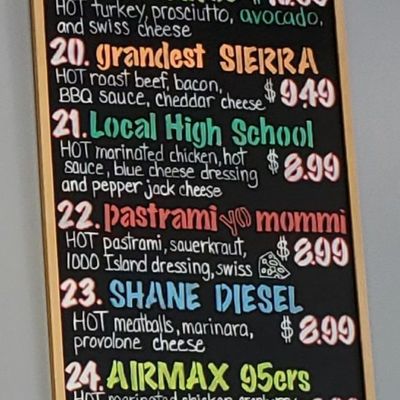 HOT turkey, prosciutto, avocado,
and swiss cheese
20. grandest SIERRA
HOT roast beef, bacon,
BBQ sauce, cheddar cheese $9.49
21. Local High School
HOT marinated chicken, hot
sauce, blue cheese dressing $8.99
and pepper jack cheese
22. pastrami yo mommi
HOT pastrami, sauerkraut, $8.99
1000 Island dressing, swiss
23. SHANE DIESEL
HOT meatballs, marinara, $8.99
provolone cheese
24. AIRMAX 95ers
HOT marinated chicken